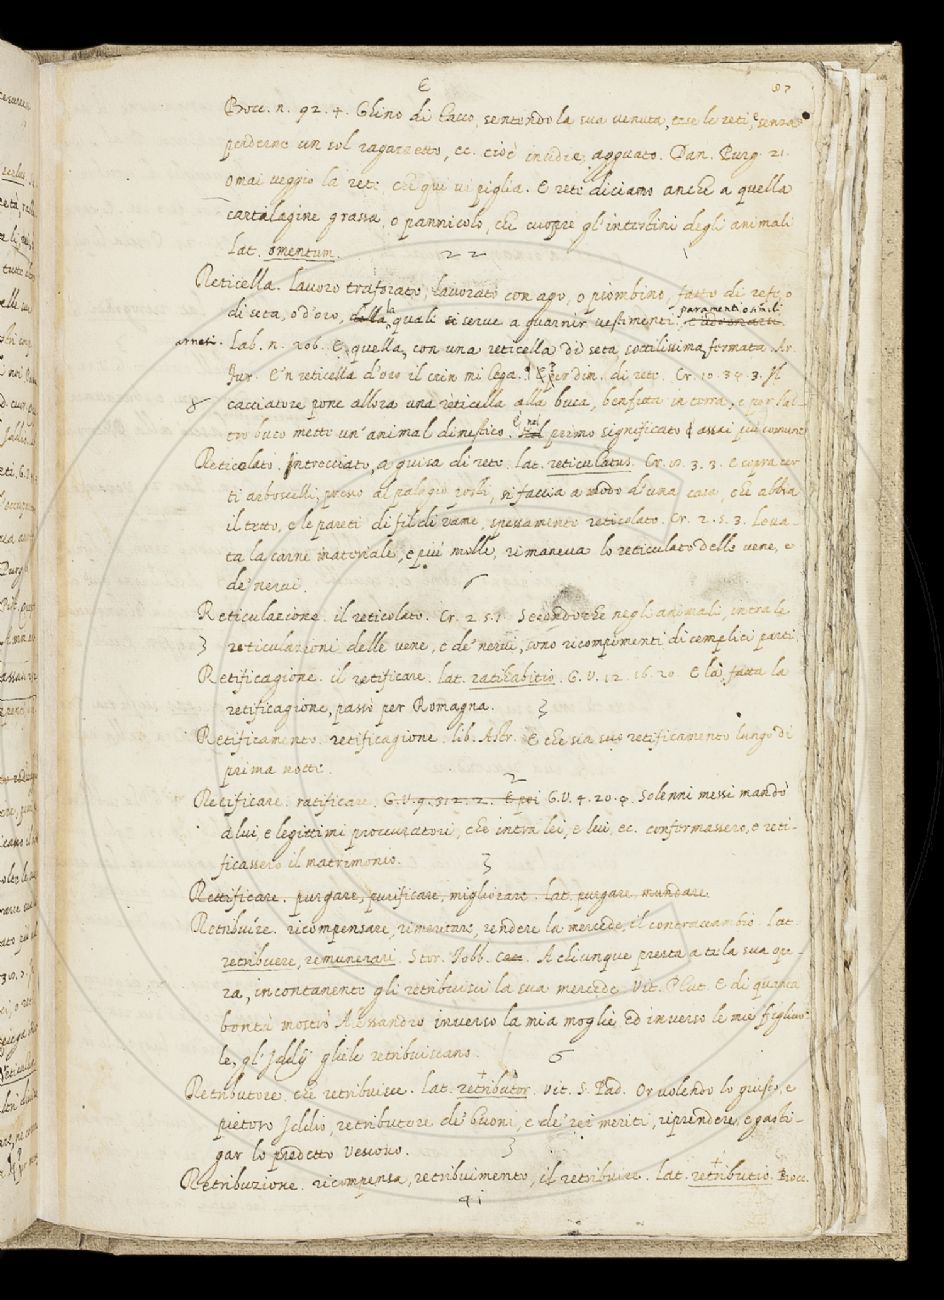 E
87
Bocc. n. 92. 4. Ghino di Tacco, sentendo la sua venuta, tese le reti, e senza
perderne un sol ragazzetto, ec. cioè insidie, agguato. Dan. Purg. 21.
Omai veggio la rete, che qui vi piglia. E rete diciamo anche a quella
cartalagine grassa, o pannicolo, che cuopre gl'intestini degli animali
lat. omentum.
Reticella. lavoro traforato, lavorato con ago, o piombino, fatto di refe, o
di seta, o d'oro, della la quale si serve a guarnir vestimenti, paramenti o simili
arnesi. Lab. n. 206. E quella, con una reticella di seta sottilissima fermata. Ar.
Fur. E 'n reticella d'oro il crin mi lega. E per dim. di rete. Cr. 10. 34. 3. Il
cacciatore pone allora una reticella alla buca, ben fitta in terra, e per l'al-
tro buco mette un'animal dimestico. E nel primo significato è assai più comune
Reticolato. Intrecciato, a guisa di rete. lat. reticulatus. Cr. 10. 3. 3. E sopra cer-
ti arboscelli, presso al palagio posti, si faccia a modo d'una casa, che abbia
il tetto, e le pareti di fil di rame, spessamente reticolato. Cr. 2. 5. 3. Leva-
ta la carne materiale, e più molle, rimaneva lo reticulato delle vene, e
de' nervi.
Reticulazione. il reticolato. Cr. 2. 5. 1. Secondoche negli animali, intra le
reticulazioni delle vene, e de' nervi, sono ricompimenti di semplici parti
Retificagione. il retificare. lat. ratihabitio. G. V. 12. 16. 20. E là fatta la
retificagione, passò per Romagna.
Retificamento. retificagione. lib. Astr. E che sia suo retificamento lungo di
prima notte.
Retificare. ratificare. G. V. 9. 312. 2. E poi G. V. 4. 20. 2. Solenni messi mandò
a lui, e legittimi procuratori, che intra lei, e lui, ec. confermassero, e reti-
ficassero il matrimonio.
Rettificare. purgare, purificare, migliorare. lat. purgare, mundare.
Retribuire. ricompensare, rimeritare, rendere la mercede, il contraccambio. lat.
retribuere, remunerari. Stor. Iobb. A cliunque presta a te la sua ope-
ra, incontanente gli retribuisci la sua mercede. Vit. Plut. E di quanta
bontà mostrò Alessandro inverso la mia moglie, ed inverso le mie figliuo-
le, gl' Iddij gliele retribuiscano.
Retributore. che retribuisce. lat. retributor. Vit. S. Pad. Or volendo lo giusto, e
pietoso Iddio, retributore de' buoni, e de' rei meriti, riprendere, e gasti-
gar lo predetto Vescovo.
Retribuzione. ricompensa, retribuimento, il retribuire. lat. retributio. Bocc.